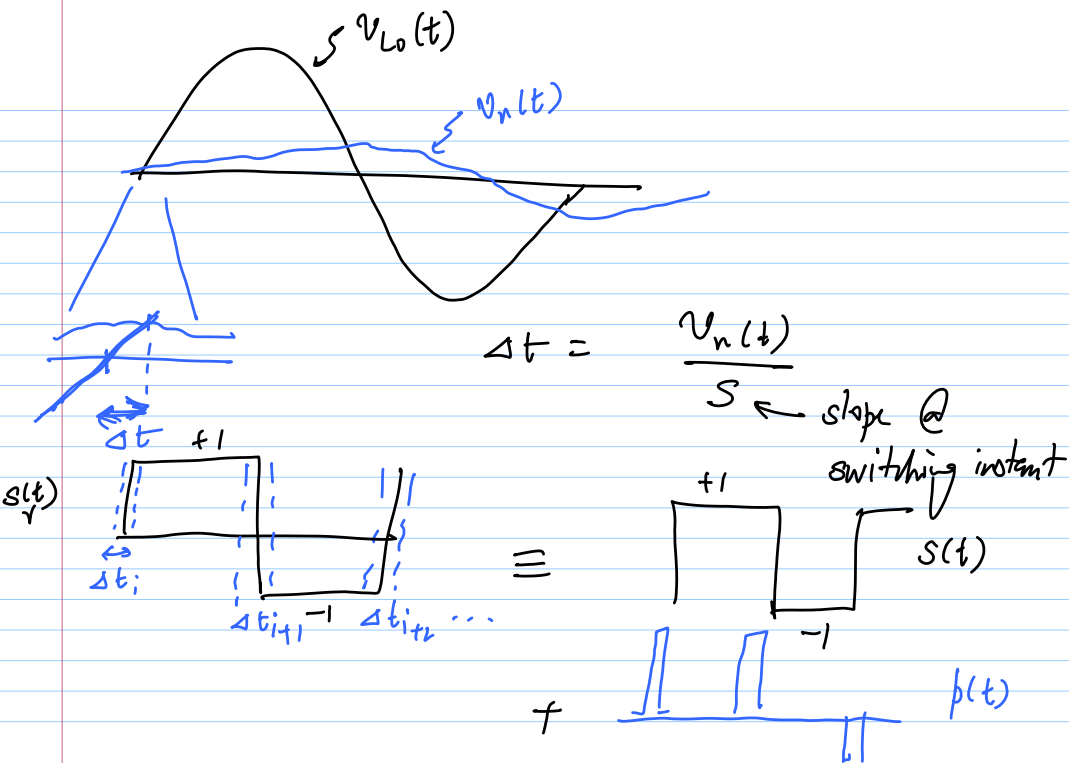 v_Lo(t)
v_n(t)
Δt = v_n(t) / S ← slope @ switching instant
Δt
+1
s_r(t)
Δt_i
Δt_{i+1}
-1
Δt_{i+2} ...
≡
+1
s(t)
-1
+
p(t)